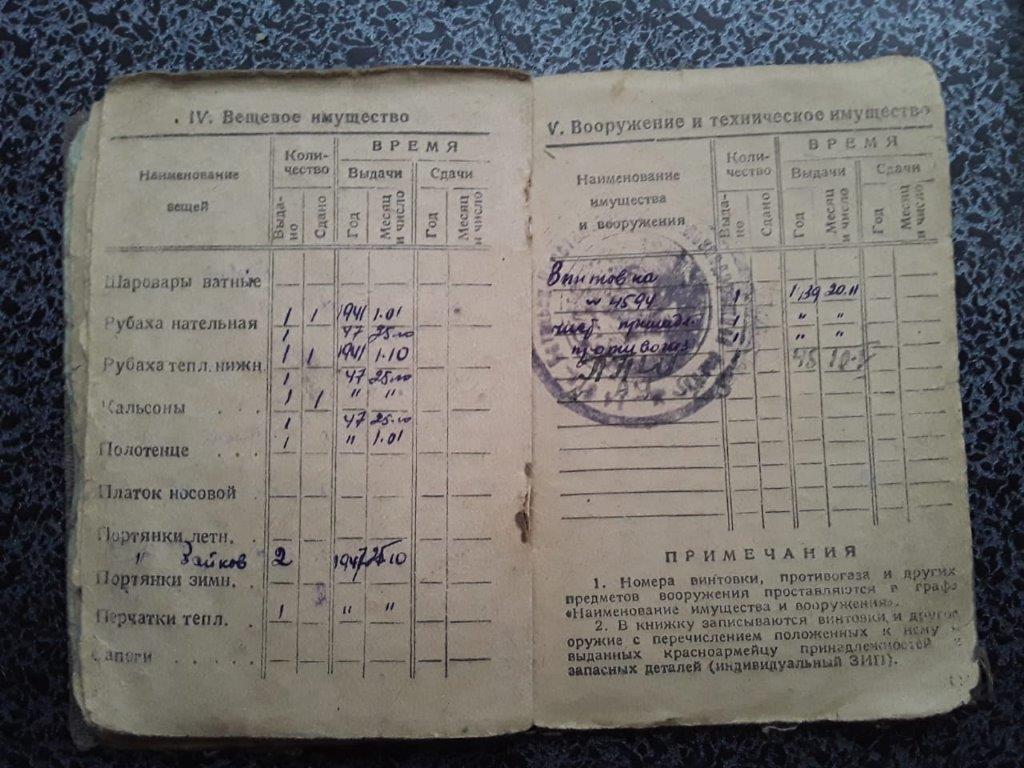 IV. Вещевое имущество
Наименование вещей
Количество
ВРЕМЯ
Выдачи
Сдачи
Выдано
Сдано
Год
Месяц и число
Год
Месяц и число
Шаровары ватные
Рубаха нательная 1 1 1941 1.01
1 47 25.10
Рубаха тепл. нижн. 1 1 1941 1.10
1 47 25.10
Кальсоны . . . 1 1 " "
1 47 25.10
Полотенце . . . 1 " 1.01
Платок носовой
Портянки летн.
" 2 1947 25.10
Портянки зимн.
Перчатки тепл. 1 " "
Сапоги . . . . .
V. Вооружение и техническое имущество
Наименование имущества и вооружения
Количество
ВРЕМЯ
Выдачи
Сдачи
Выдано
Сдано
Год
Месяц и число
Год
Месяц и число
Винтовка
№ 4594 1 20.11
1 " "
противогаз 1 " "
ПРИМЕЧАНИЯ
1. Номера винтовки, противогаза и других
предметов вооружения проставляются в графе
«Наименование имущества и вооружения».
2. В книжку записываются винтовки и другое
оружие с перечислением положенных к нему и
выданных красноармейцу принадлежностей и
запасных деталей (индивидуальный ЗИП).